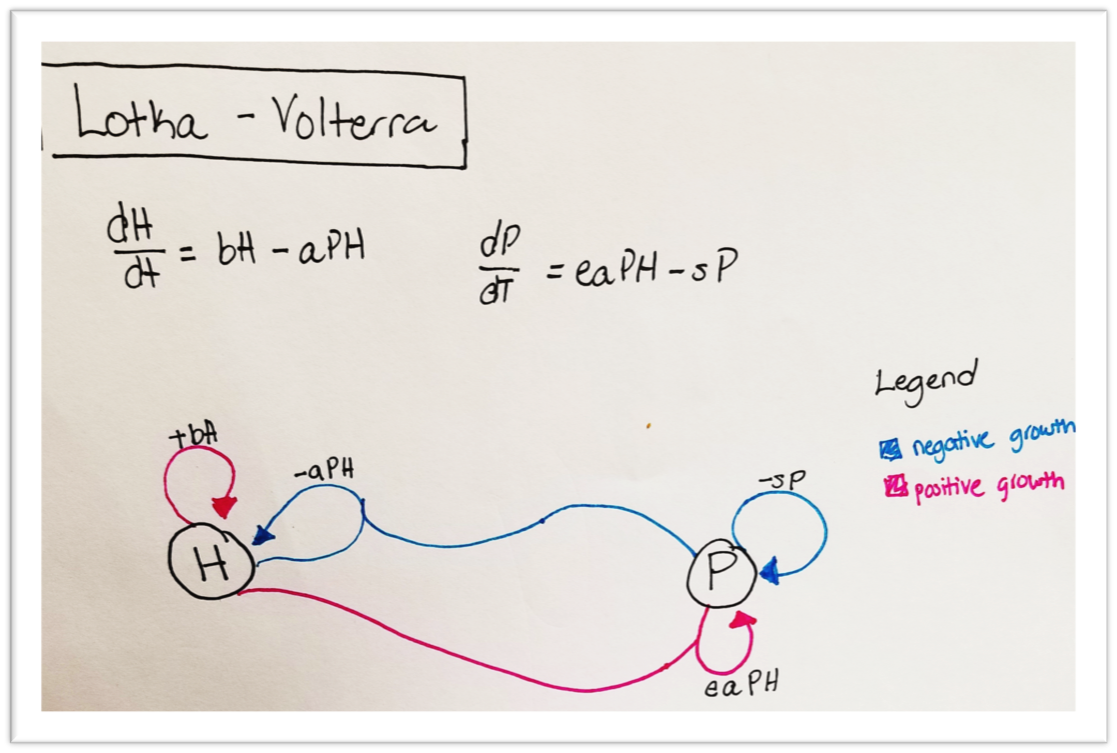 Lotka - Volterra
dH/dt = bH - aPH
dP/dT = eaPH - sP
Legend
negative growth
positive growth
+bH
-aPH
-sP
H
P
eaPH